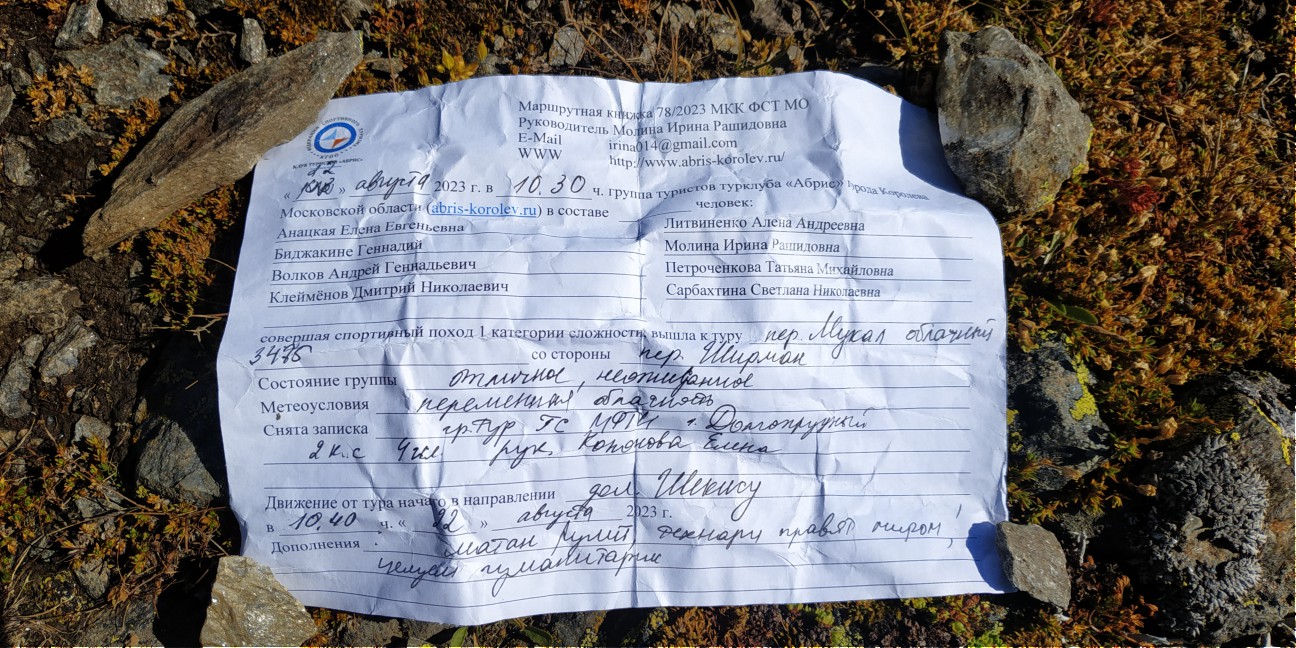 Маршрутная книжка 78/2023 МКК ФСТ МО
Руководитель Молина Ирина Рашидовна
E-Mail irina014@gmail.com
WWW http://www.abris-korolev.ru/
КЛУБ ТУРИСТОВ «АБРИС»
« 22 » августа 2023 г. в 10.30 ч. группа туристов турклуба «Абрис» города Королева
Московской области (abris-korolev.ru) в составе человек:
Анацкая Елена Евгеньевна Литвиненко Алена Андреевна
Биджакине Геннадий Молина Ирина Рашидовна
Волков Андрей Геннадьевич Петроченкова Татьяна Михайловна
Клеймёнов Дмитрий Николаевич Сарбахтина Светлана Николаевна
совершая спортивный поход 1 категории сложности, вышла к туру пер. Мукал облачный
3475 со стороны пер. Ширман
Состояние группы отличное, неожиданное
Метеоусловия переменная облачность
Снята записка гр. тур ТС МФТИ г. Долгопрудный
2 к.с 4 чел рук. Кононова Елена
Движение от тура начато в направлении дол. Шекису
в 10.40 ч. « 22 » августа 2023 г.
Дополнения матан рулит, технари правят миром!
гуманитарии